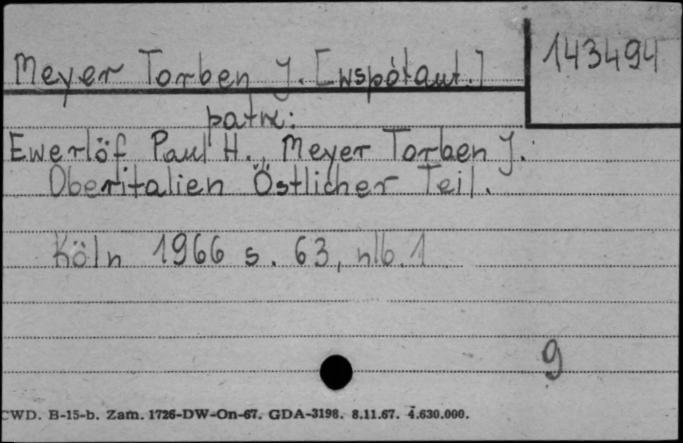 Meyer Torben J. [współaut.]
143494
patrz:
Ewerlöf Paul H., Meyer Torben J.
Oberitalien Östlicher Teil.
Köln 1966 s. 63, nlb. 1
9
CWD. B-15-b. Zam. 1726-DW-On-67. GDA-3198. 8.11.67. 4.630.000.